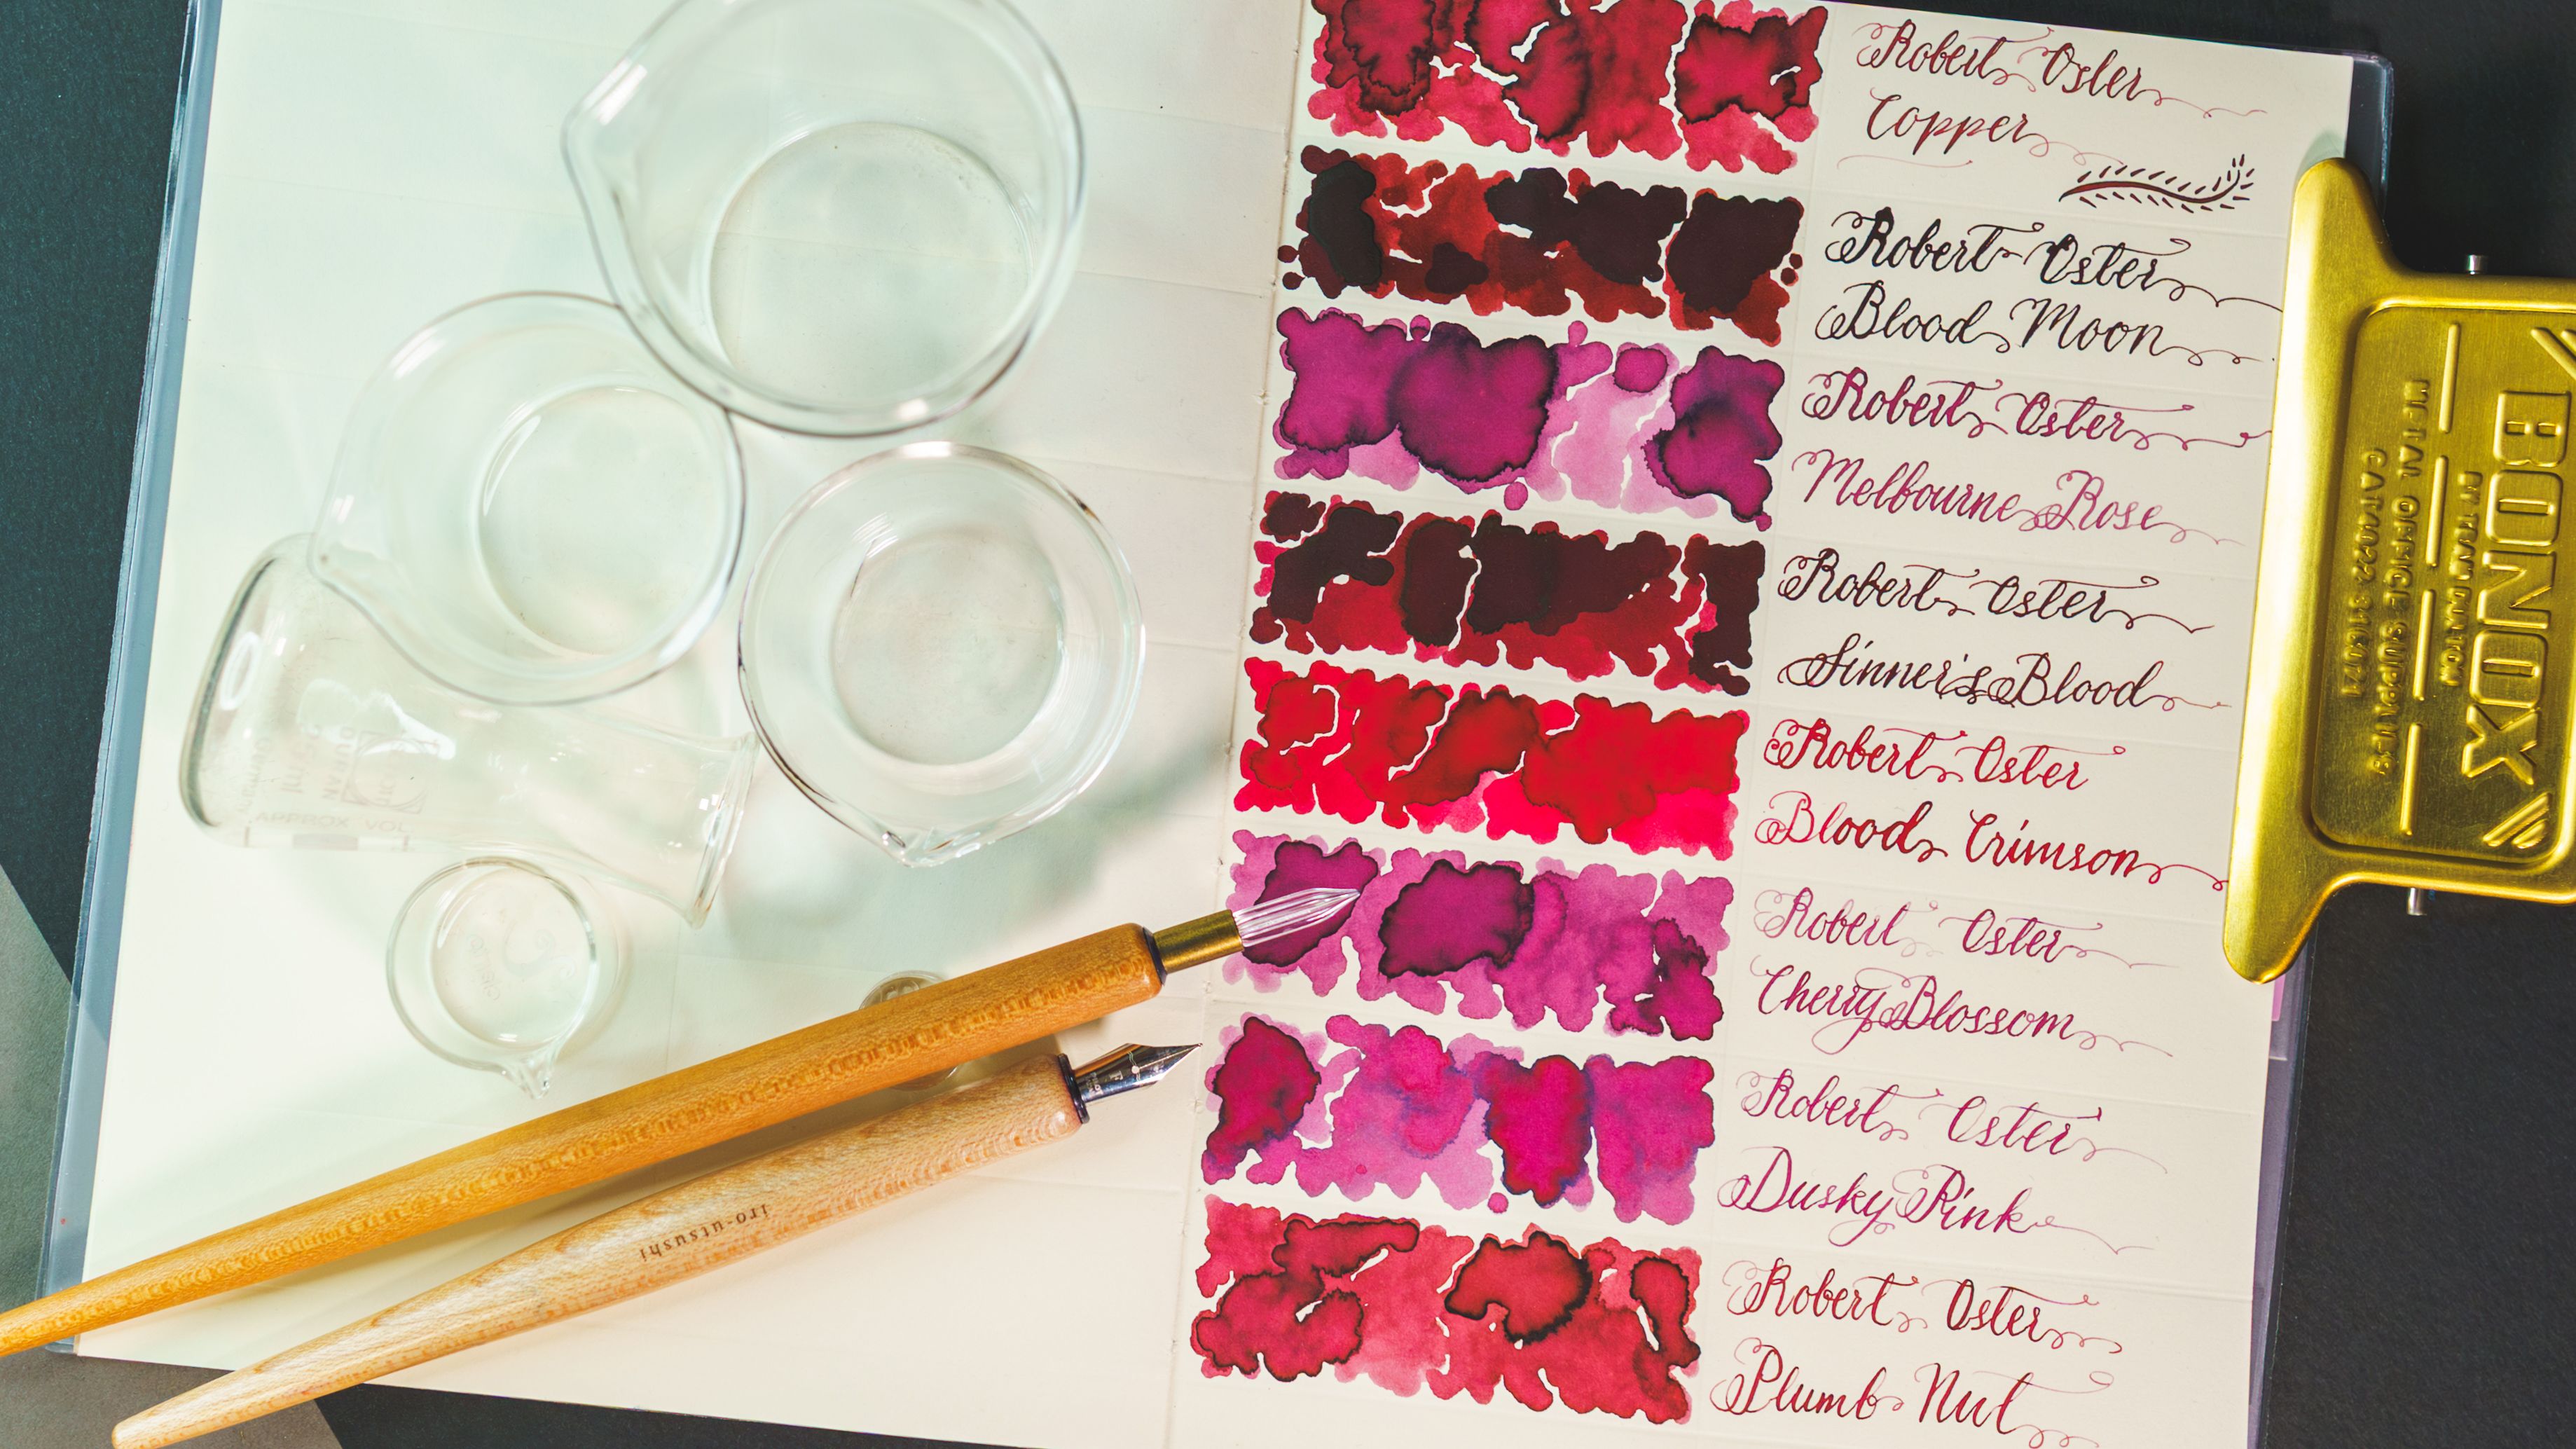 Robert Oster
Copper
Robert Oster
Blood Moon
Robert Oster
Melbourne Rose
Robert Oster
Sinner's Blood
Robert Oster
Blood Crimson
Robert Oster
Cherry Blossom
Robert Oster
Dusky Pink
Robert Oster
Plumb Nut
BONOX
METAL OFFICE SUPPLIES
APPROX VOL
iro-utsushi
F